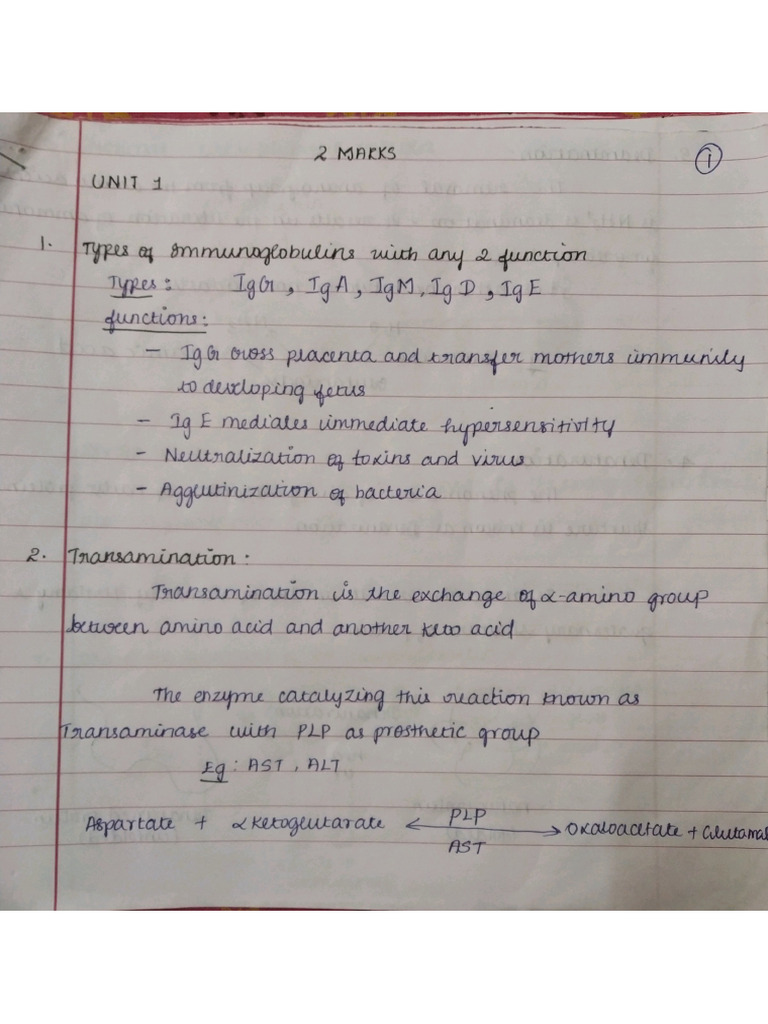 2 MARKS
1
UNIT 1
1. Types of Immunoglobulins with any 2 function
Types: IgG, IgA, IgM, IgD, IgE
functions:
- IgG cross placenta and transfer mothers immunity
to developing fetus
- IgE mediates immediate hypersensitivity
- Neutralization of toxins and virus
- Agglutinization of bacteria
2. Transamination:
Transamination is the exchange of α-amino group
between amino acid and another keto acid
The enzyme catalyzing this reaction known as
Transaminase with PLP as prosthetic group
Eg: AST, ALT
PLP
Aspartate + α ketoglutarate ⟷ Oxaloacetate + Glutamat
AST